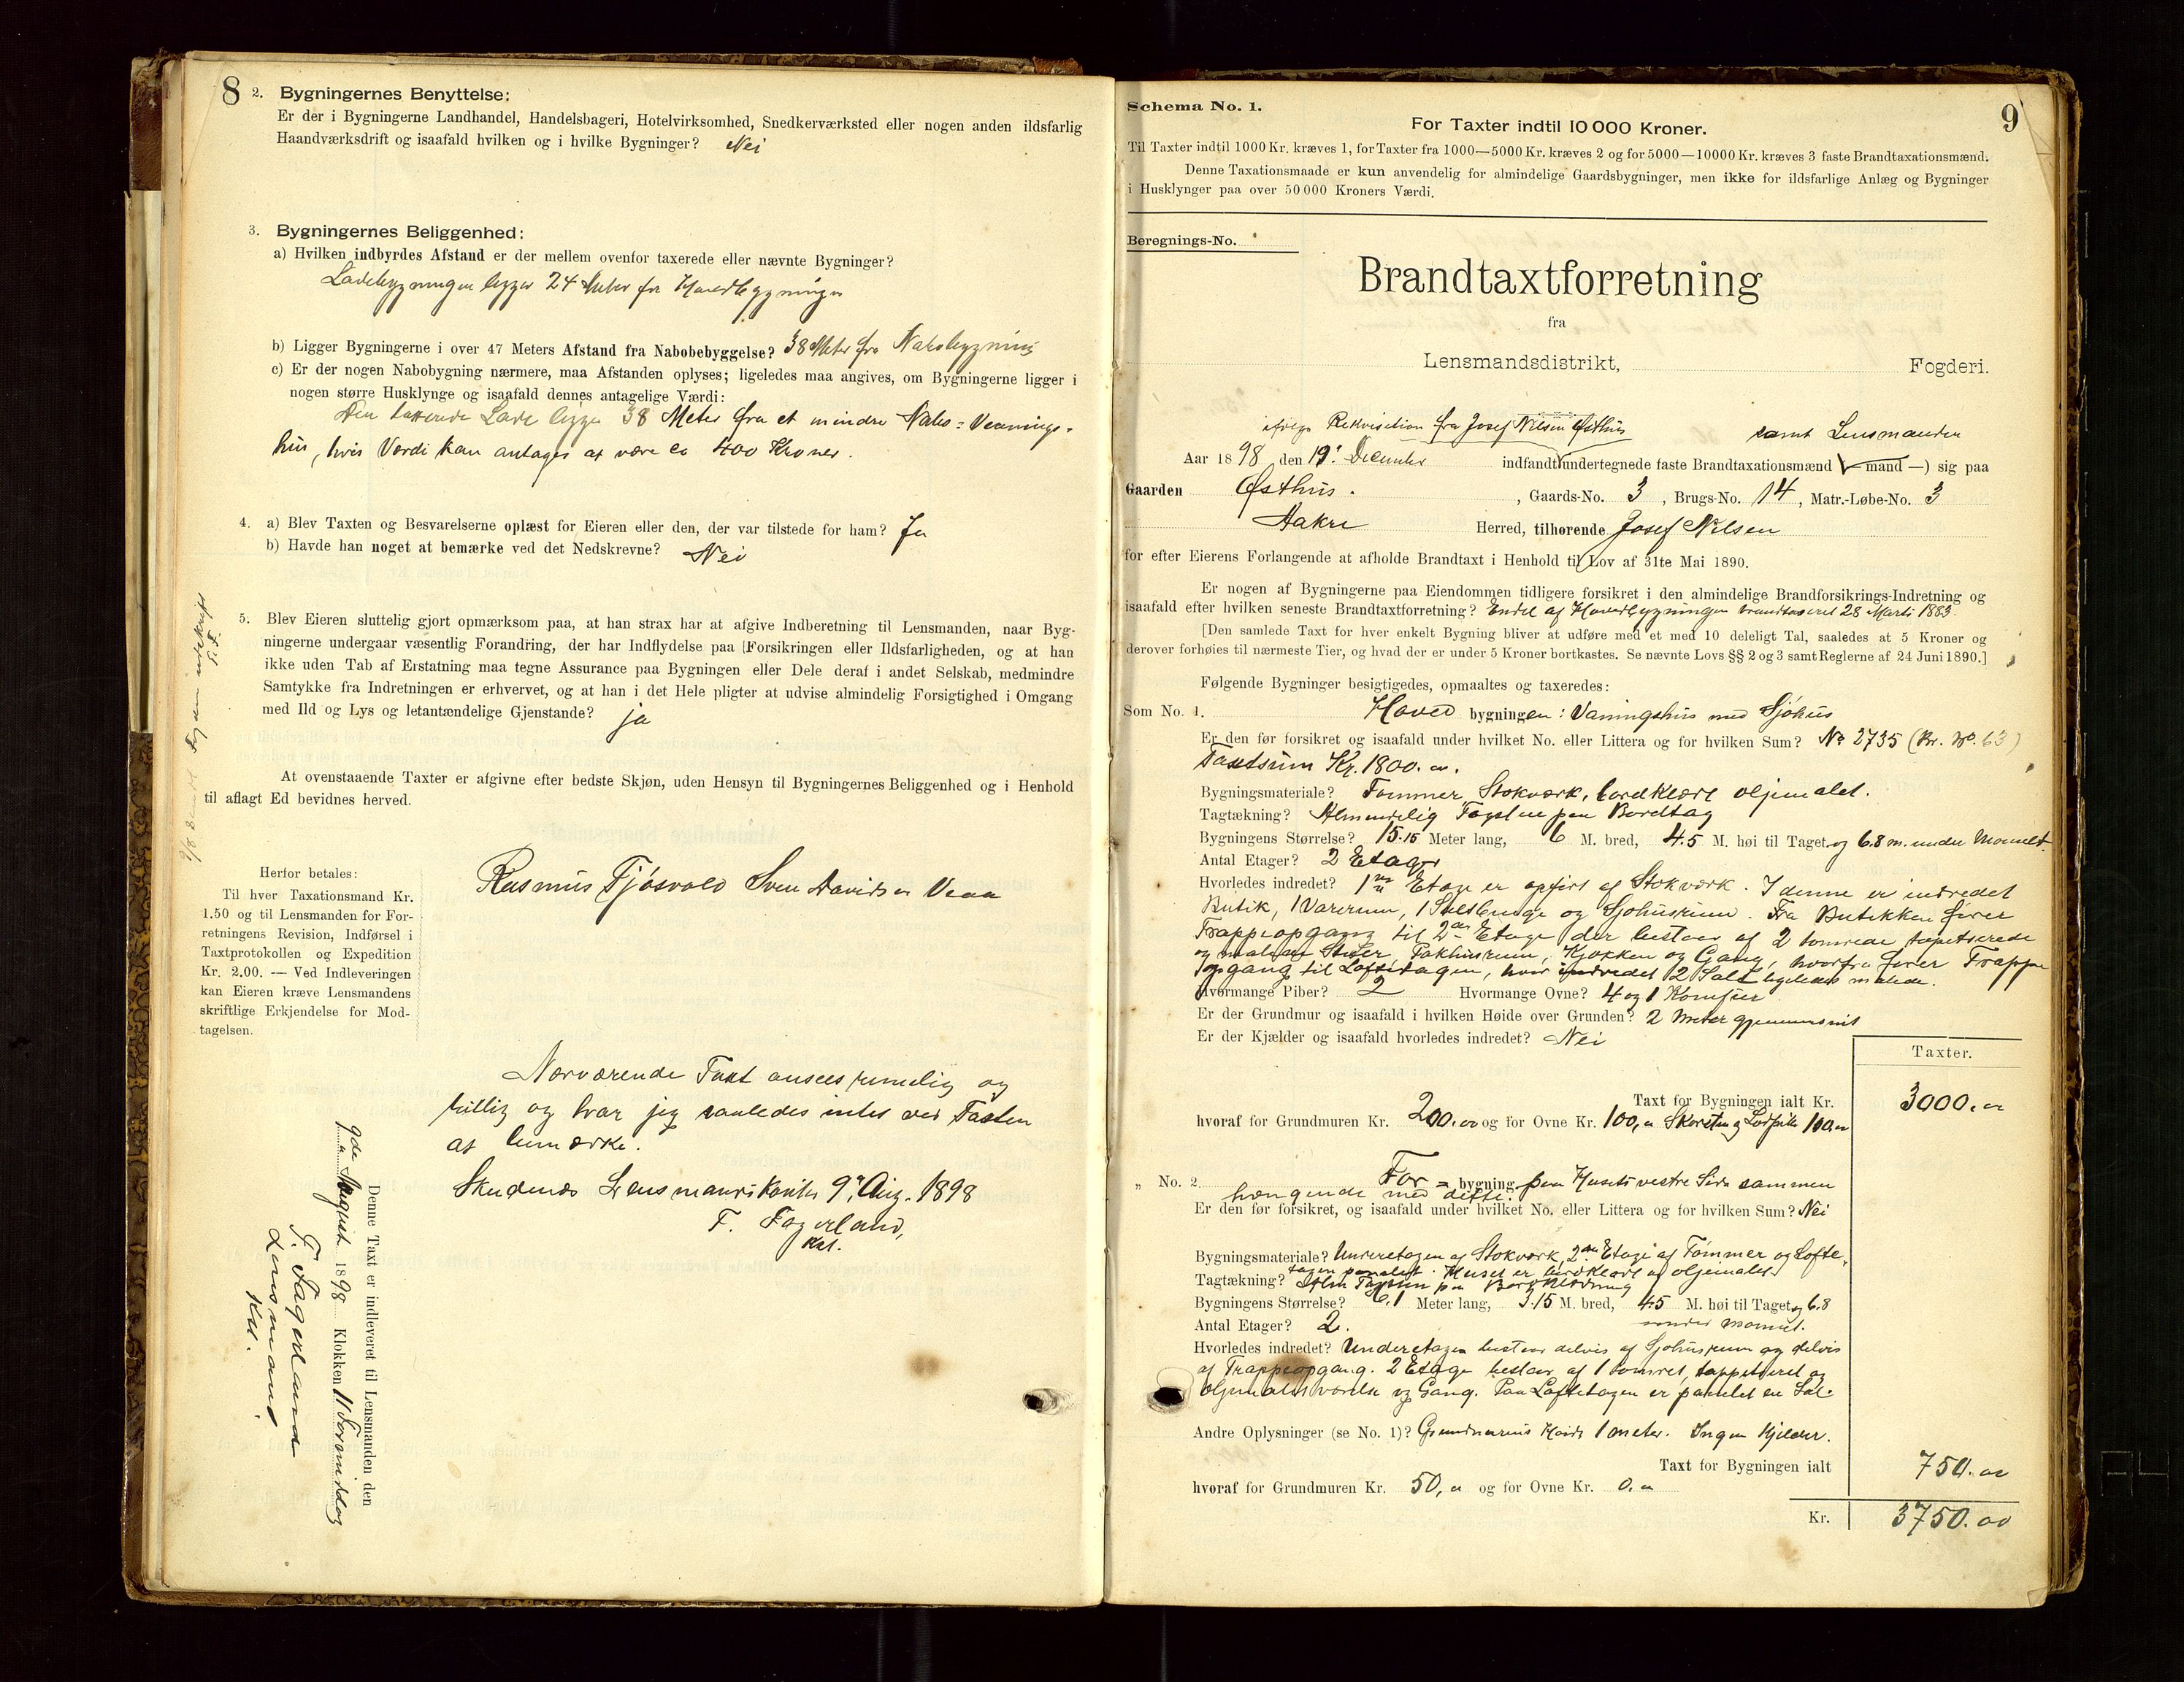 8
2. Bygningernes Benyttelse:
Er der i Bygningerne Landhandel, Handelsbageri, Hotelvirksomhed, Snedkerværksted eller nogen anden ildsfarlig
Haandværksdrift og isaafald hvilken og i hvilke Bygninger? Nei
3. Bygningernes Beliggenhed:
a) Hvilken indbyrdes Afstand er der mellem ovenfor taxerede eller nævnte Bygninger?
Ladebygningen ligger 24 Meter fra Hovedbygningen
b) Ligger Bygningerne i over 47 Meters Afstand fra Nabobebyggelse? 38 Meter fra Nabobygning
c) Er der nogen Nabobygning nærmere, maa Afstanden oplyses; ligeledes maa angives, om Bygningerne ligger i
nogen større Husklynge og isaafald dennes antagelige Værdi:
Den taxerede Lade ligger 38 Meter fra et mindre Nabo-Vaanings-
hus, hvis Værdi kan antages at være ca 400 Kroner.
4. a) Blev Taxten og Besvarelserne oplæst for Eieren eller den, der var tilstede for ham? Ja
b) Havde han noget at bemærke ved det Nedskrevne? Nei
5. Blev Eieren sluttelig gjort opmærksom paa, at han strax har at afgive Indberetning til Lensmanden, naar Byg-
ningerne undergaar væsentlig Forandring, der har Indflydelse paa Forsikringen eller Ildsfarligheden, og at han
ikke uden Tab af Erstatning maa tegne Assurance paa Bygningen eller Dele deraf i andet Selskab, medmindre
Samtykke fra Indretningen er erhvervet, og at han i det Hele pligter at udvise almindelig Forsigtighed i Omgang
med Ild og Lys og letantændelige Gjenstande? ja
At ovenstaaende Taxter er afgivne efter bedste Skjøn, uden Hensyn til Bygningernes Beliggenhed og i Henhold
til aflagt Ed bevidnes herved.
Rasmus Tjøsvold Sven Davidsen Veaa
Herfor betales:
Til hver Taxationsmand Kr.
1.50 og til Lensmanden for For-
retningens Revision, Indførsel i
Taxtprotokollen og Expedition
Kr. 2.00. — Ved Indleveringen
kan Eieren kræve Lensmandens
skriftlige Erkjendelse for Mod-
tagelsen.
Nærværende Taxt ansees rimelig og
billig og har jeg saaledes intet ved Taxten
at bemærke.
Skudenes Lensmandskontor 9. Aug. 1898
F. Fagerland,
Kst.
Denne Taxt er indleveret til Lensmanden den
9de August 1898 Klokken 11 Formiddag
F. Fagerland
Lensmand
Kst.
Schema No. 1.
9
For Taxter indtil 10 000 Kroner.
Til Taxter indtil 1000 Kr. kræves 1, for Taxter fra 1000—5000 Kr. kræves 2 og for 5000—10000 Kr. kræves 3 faste Brandtaxationsmænd.
Denne Taxationsmaade er kun anvendelig for almindelige Gaardsbygninger, men ikke for ildsfarlige Anlæg og Bygninger
i Husklynger paa over 50 000 Kroners Værdi.
Beregnings-No.
Brandtaxtforretning
fra
Lensmandsdistrikt, Fogderi.
ifølge Rekvisition fra Josef Nilsen Østhus samt Lensmanden
Aar 1898, den 19. December indfandt undertegnede faste Brandtaxationsmænd (— mand —) sig paa
Gaarden Østhus. , Gaards-No. 3, Brugs-No. 14, Matr.-Løbe-No. 3
Aakre Herred, tilhørende Josef Nilsen
for efter Eierens Forlangende at afholde Brandtaxt i Henhold til Lov af 31te Mai 1890.
Er nogen af Bygningerne paa Eiendommen tidligere forsikret i den almindelige Brandforsikrings-Indretning og
isaafald efter hvilken seneste Brandtaxtforretning? Endel af Hovedbygningen brandtaxeret 28 Marts 1883.
[Den samlede Taxt for hver enkelt Bygning bliver at udføre med et med 10 deleligt Tal, saaledes at 5 Kroner og
derover forhøies til nærmeste Tier, og hvad der er under 5 Kroner bortkastes. Se nævnte Lovs §§ 2 og 3 samt Reglerne af 24 Juni 1890.]
Følgende Bygninger besigtigedes, opmaaltes og taxeredes:
Som No. 1. Hoved bygningen: Vaaningshus med Sjøhus
Er den før forsikret og isaafald under hvilket No. eller Littera og for hvilken Sum? No 2735 (Br. No. 63)
Taxtsum Kr. 1800.00.
Bygningsmateriale? Tømmer, Stokværk, bordklædt oljemalet.
Tagtækning? Almindelig Tagsten paa Bordtag
Bygningens Størrelse? 15.15 Meter lang, 6 M. bred, 4.5 M. høi til Taget og 6.8 m. under Mønnet.
Antal Etager? 2 Etager
Hvorledes indredet? 1ste Etage er opført af Stokværk. I denne er indredet
Butik, 1 Varerum, 1 og Sjøhusrum. Fra Butikken fører
Trappeopgang til 2den Etage der bestaar af 2 tømrede tapetserede
og malede Stuer, Pakhusrum, Kjøkken og Gang, hvorfra fører Trappe
opgang til Loftetagen, hvor indredet 2 Sale ligeledes malede.
Hvormange Piber? 2 Hvormange Ovne? 4 og 1 Komfur
Er der Grundmur og isaafald i hvilken Høide over Grunden? 2 Meter gjennemsnit
Er der Kjælder og isaafald hvorledes indredet? Nei
Taxter.
Taxt for Bygningen ialt Kr. 3000.00
hvoraf for Grundmuren Kr. 200.00 og for Ovne Kr. 100,00 Skorsten og 100.00
„ No. 2. For- bygning paa Husets vestre Side sammen
hængende med dette.
Er den før forsikret, og isaafald under hvilket No. eller Littera og for hvilken Sum? Nei
Bygningsmateriale? Underetagen af Stokværk, 2den Etage af Tømmer og Lofte-
tagen panelet. Huset er bordklædt og oljemalet
Tagtækning? Alm Tagsten paa Bordklædning
Bygningens Størrelse? 6.1 Meter lang, 3.15 M. bred, 4.5 M. høi til Taget og 6.8
under Mønnet.
Antal Etager? 2.
Hvorledes indredet? Underetagen bestaar delvis af Sjøhusrum og delvis
af Trappeopgang. 2 Etage bestaar af 1 tømret, tappetseret og
oljemalet værelse og Gang. Paa Loftetagen er panelet en Sal.
Andre Oplysninger (se No. 1)? Grundmurens Høide 1 meter. Ingen Kjelder.
Taxt for Bygningen ialt 750.00
hvoraf for Grundmuren Kr. 50,00 og for Ovne Kr. 0.00
Kr. 3750.00